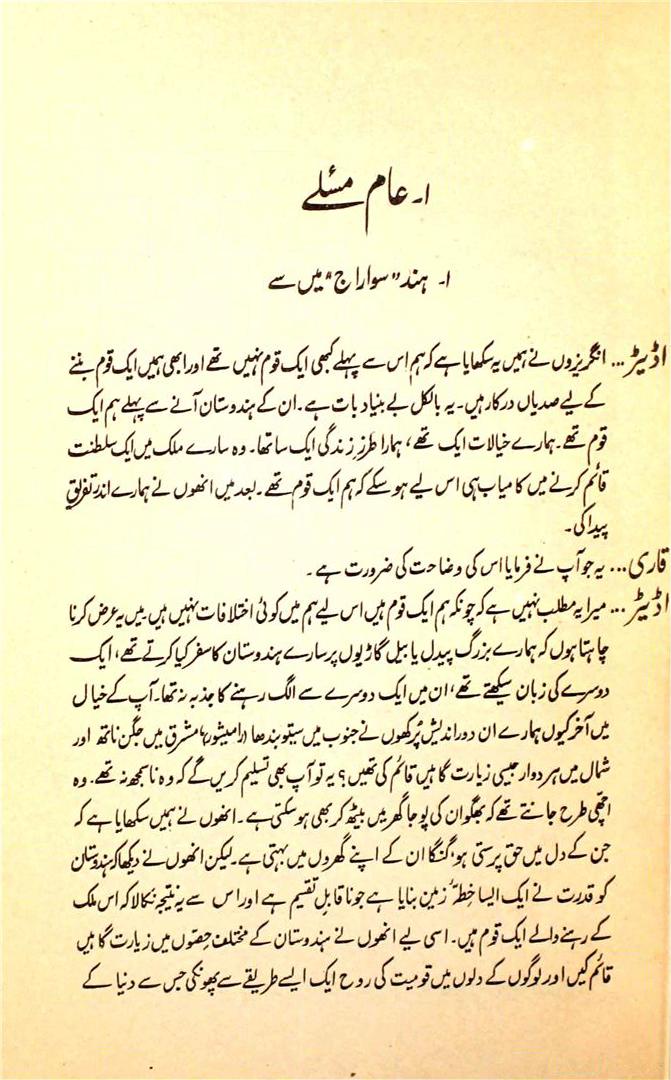 ۱۔ عام مسئلے
۱۔ ہند "سواراج" میں سے
اڈیٹر... انگریزوں نے ہمیں یہ سکھایا ہے کہ ہم اس سے پہلے کبھی ایک قوم نہیں تھے اور ابھی ہمیں ایک قوم بننے
کے لیے صدیاں درکار ہیں۔ یہ بالکل بے بنیاد بات ہے۔ ان کے ہندوستان آنے سے پہلے ہم ایک
قوم تھے۔ ہمارے خیالات ایک تھے، ہمارا طرزِ زندگی ایک سا تھا۔ وہ سارے ملک میں ایک سلطنت
قائم کرنے میں کامیاب ہی اس لیے ہو سکے کہ ہم ایک قوم تھے۔ بعد میں انھوں نے ہمارے اندر تفریق
پیدا کی۔
قاری... یہ جو آپ نے فرمایا اس کی وضاحت کی ضرورت ہے۔
اڈیٹر... میرا یہ مطلب نہیں ہے کہ چونکہ ہم ایک قوم ہیں اس لیے ہم میں کوئی اختلافات نہیں ہیں میں یہ عرض کرنا
چاہتا ہوں کہ ہمارے بزرگ پیدل یا بیل گاڑیوں پر سارے ہندوستان کا سفر کیا کرتے تھے، ایک
دوسرے کی زبان سیکھتے تھے، ان میں ایک دوسرے سے الگ رہنے کا جذبہ نہ تھا۔ آپ کے خیال
میں آخر کیوں ہمارے ان دور اندیش پُرکھوں نے جنوب میں سیتو بندھا (رامیشور) مشرق میں جگن ناتھ اور
شمال میں ہر دوار جیسی زیارت گاہیں قائم کی تھیں؟ یہ تو آپ بھی تسلیم کریں گے کہ وہ ناسمجھ نہ تھے۔ وہ
اچھی طرح جانتے تھے کہ بھگوان کی پوجا گھر میں بیٹھ کر بھی ہو سکتی ہے۔ انھوں نے ہمیں سکھایا ہے کہ
جن کے دل میں حق پرستی ہو، گنگا ان کے اپنے گھروں میں بہتی ہے۔ لیکن انھوں نے دیکھا کہ ہندوستان
کو قدرت نے ایک ایسا خطۂ زمین بنایا ہے جو ناقابلِ تقسیم ہے اور اس سے یہ نتیجہ نکالا کہ اس ملک
کے رہنے والے ایک قوم ہیں۔ اسی لیے انھوں نے ہندوستان کے مختلف حصّوں میں زیارت گاہیں
قائم کیں اور لوگوں کے دلوں میں قومیت کی روح ایک ایسے طریقے سے پھونکی جس سے دنیا کے